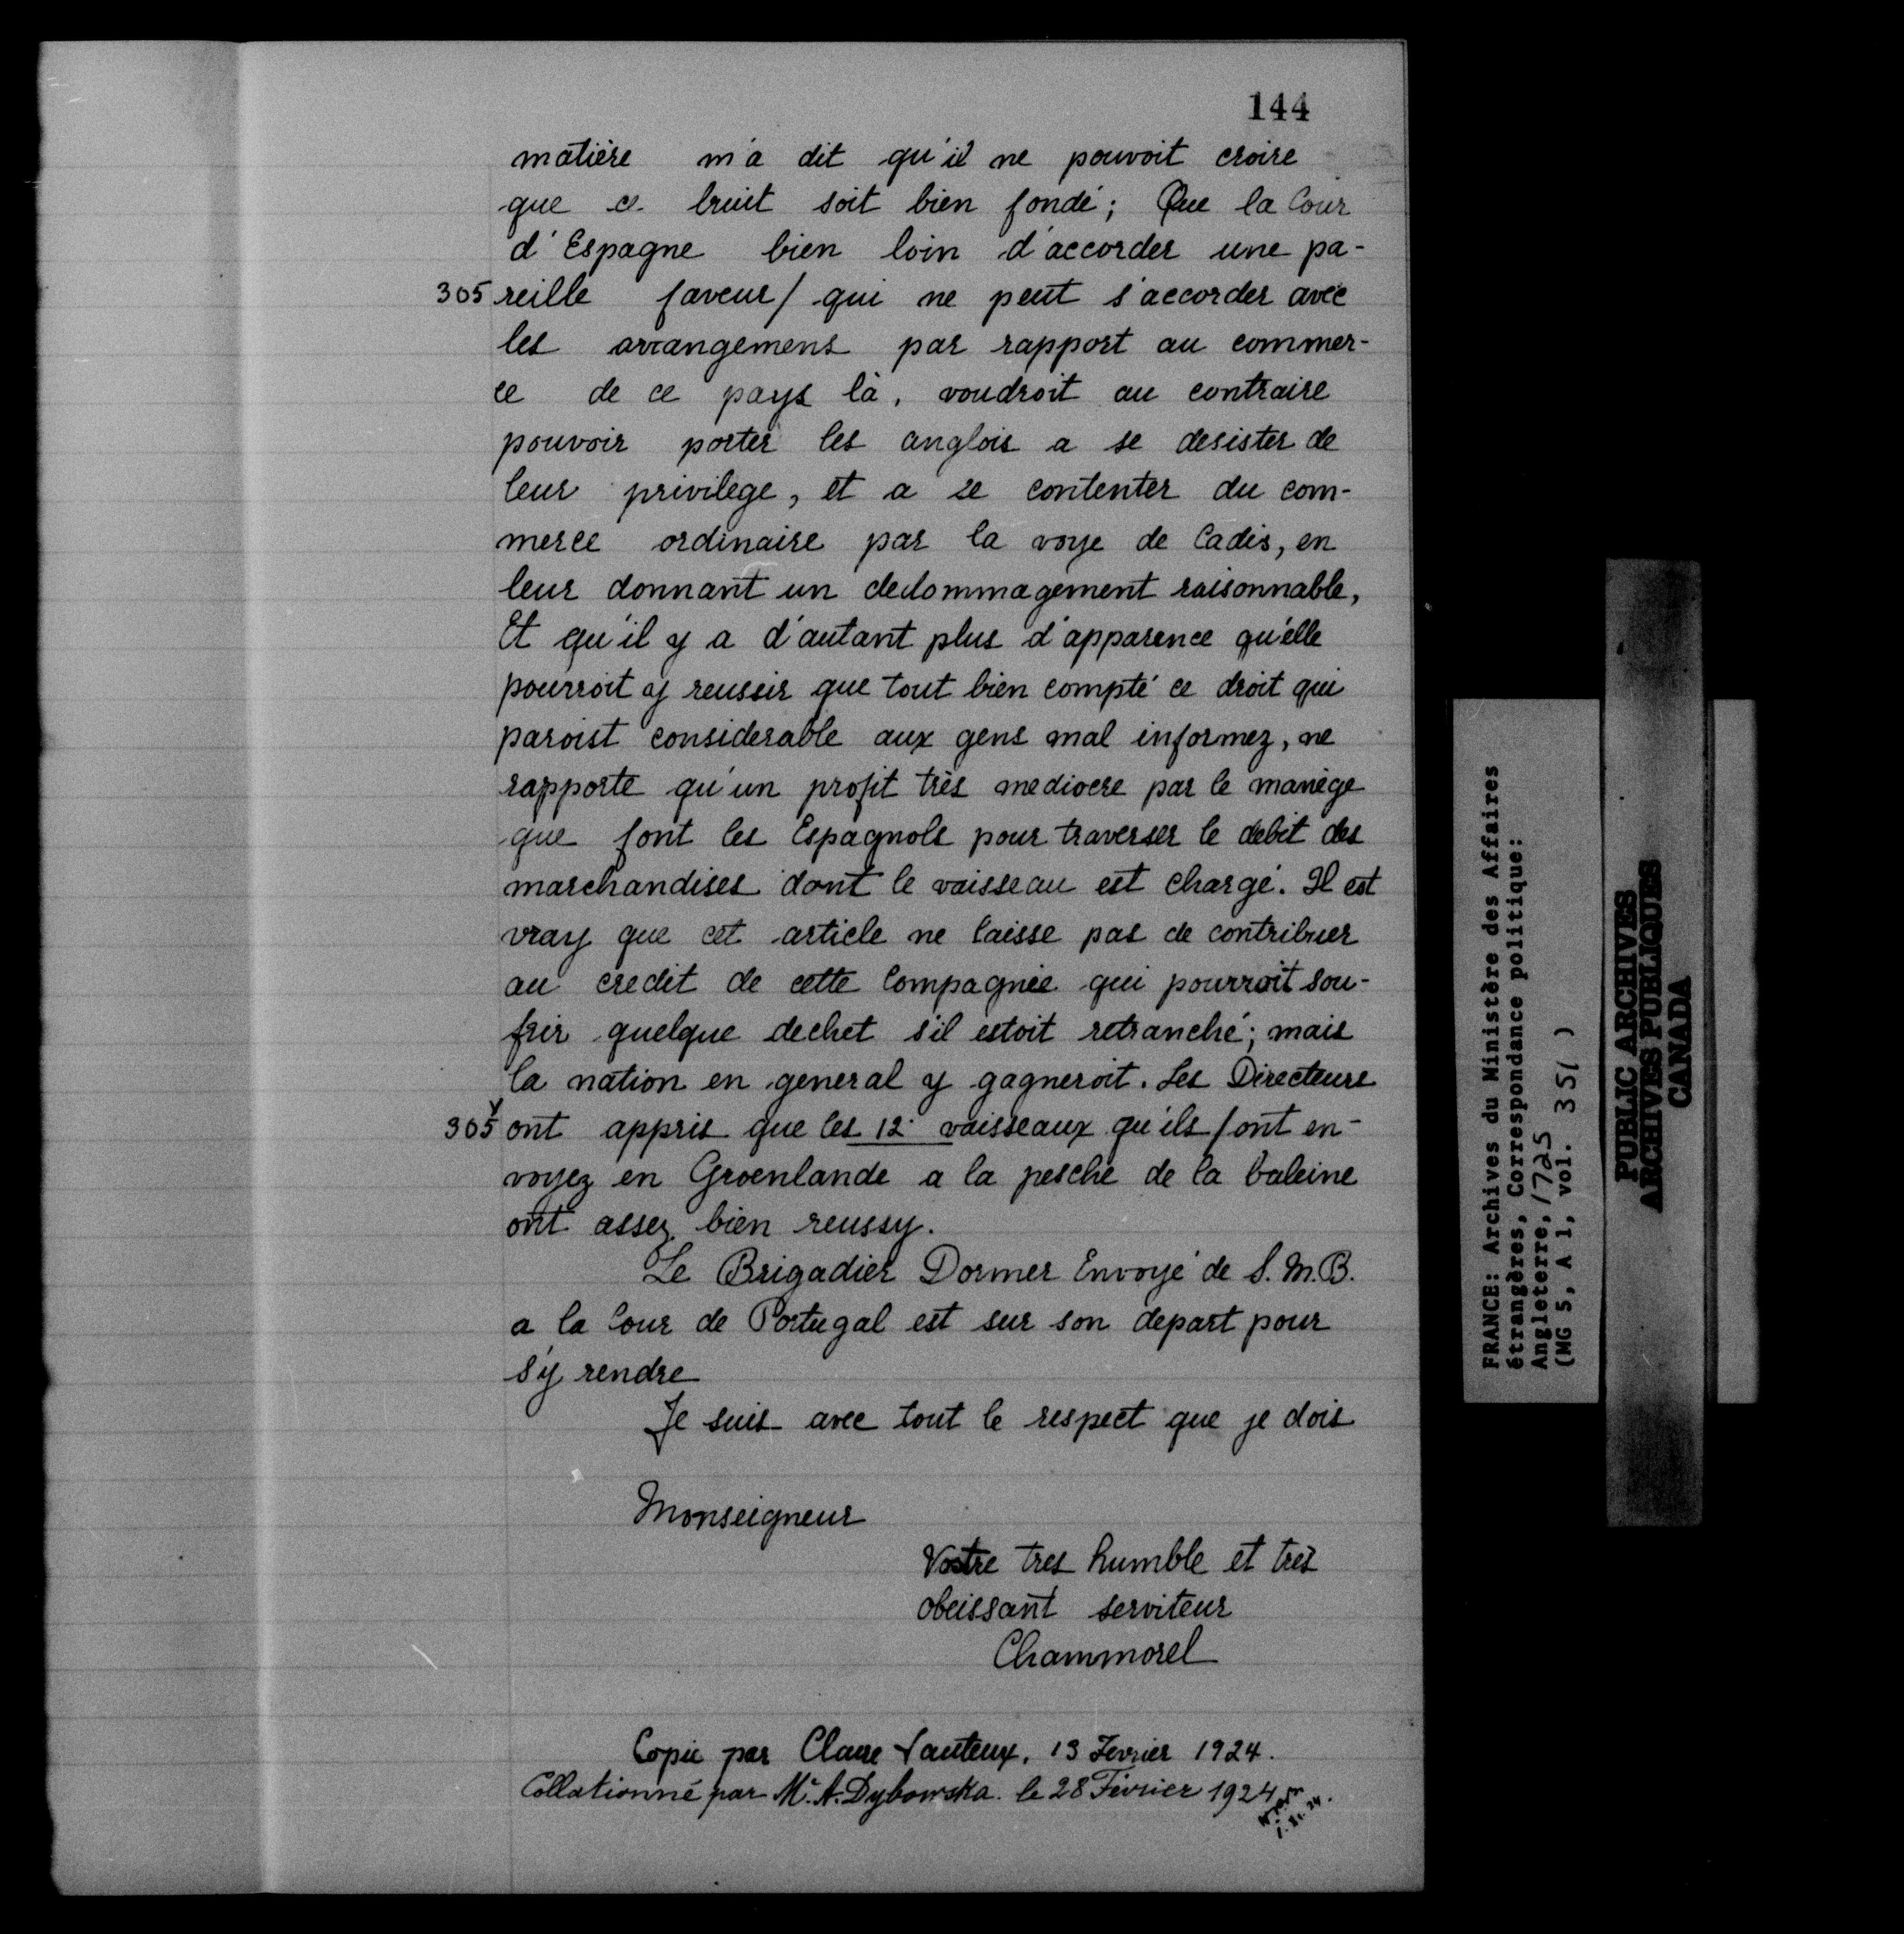 144
matière m'a dit qu'il ne pouvoit croire
que ce bruit soit bien fondé; Que la Cour
d'Espagne bien loin d'accorder une pa-
305 reille faveur/ qui ne peut s'accorder avec
les arrangemens par rapport au commer-
ce de ce pays là, voudroit au contraire
pouvoir porter les anglois a se desister de
leur privilege, et a se contenter du com-
merce ordinaire par la voye de Cadis, en
leur donnant un dedommagement raisonnable,
Et qu'il y a d'autant plus d'apparence qu'elle
pourroit y reussir que tout bien compté ce droit qui
paroist considerable aux gens mal informez, ne
rapporte qu'un profit très mediocre par le manège
que font les Espagnols pour traverser le debit des
marchandises dont le vaisseau est chargé. Il est
vray que cet article ne laisse pas de contribuer
au credit de cette Compagnie qui pourroit sou-
frir quelque dechet s'il estoit retranché; mais
la nation en general y gagneroit. Les Directeurs
305v ont appris que les 12. vaisseaux qu'ils/ont en-
voyez en Groenlande a la pesche de la baleine
ont assez bien reussy.
Le Brigadier Dormer Envoyé de S. M. B.
a la Cour de Portugal est sur son depart pour
s'y rendre
Je suis avec tout le respect que je dois
Monseigneur
Vostre tres humble et très
obeissant serviteur
Chammorel
Copié par Claire Vauteux, 13 Fevrier 1924.
Collationné par Mr. A. Dybowska. le 28 Février 1924
FRANCE: Archives du Ministère des Affaires
étrangères, Correspondance politique:
Angleterre, 1725
(MG 5, A 1, vol. 351 )
PUBLIC ARCHIVES
ARCHIVES PUBLIQUES
CANADA